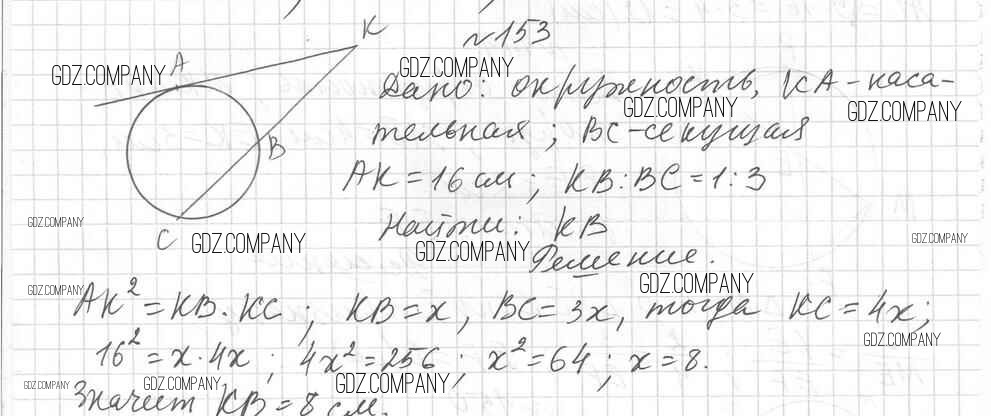 №153
K
A
B
C
Дано: окружность, KA - каса-
тельная; BC - секущая
AK = 16 см; KB : BC = 1 : 3
Найти: KB
Решение.
AK² = KB · KC; KB = x, BC = 3x, тогда KC = 4x;
16² = x · 4x; 4x² = 256; x² = 64; x = 8.
Значит KB = 8 см.
GDZ.COMPANY
GDZ.COMPANY
GDZ.COMPANY
GDZ.COMPANY
GDZ.COMPANY
GDZ.COMPANY
GDZ.COMPANY
GDZ.COMPANY
GDZ.COMPANY
GDZ.COMPANY
GDZ.COMPANY
GDZ.COMPANY
GDZ.COMPANY
GDZ.COMPANY